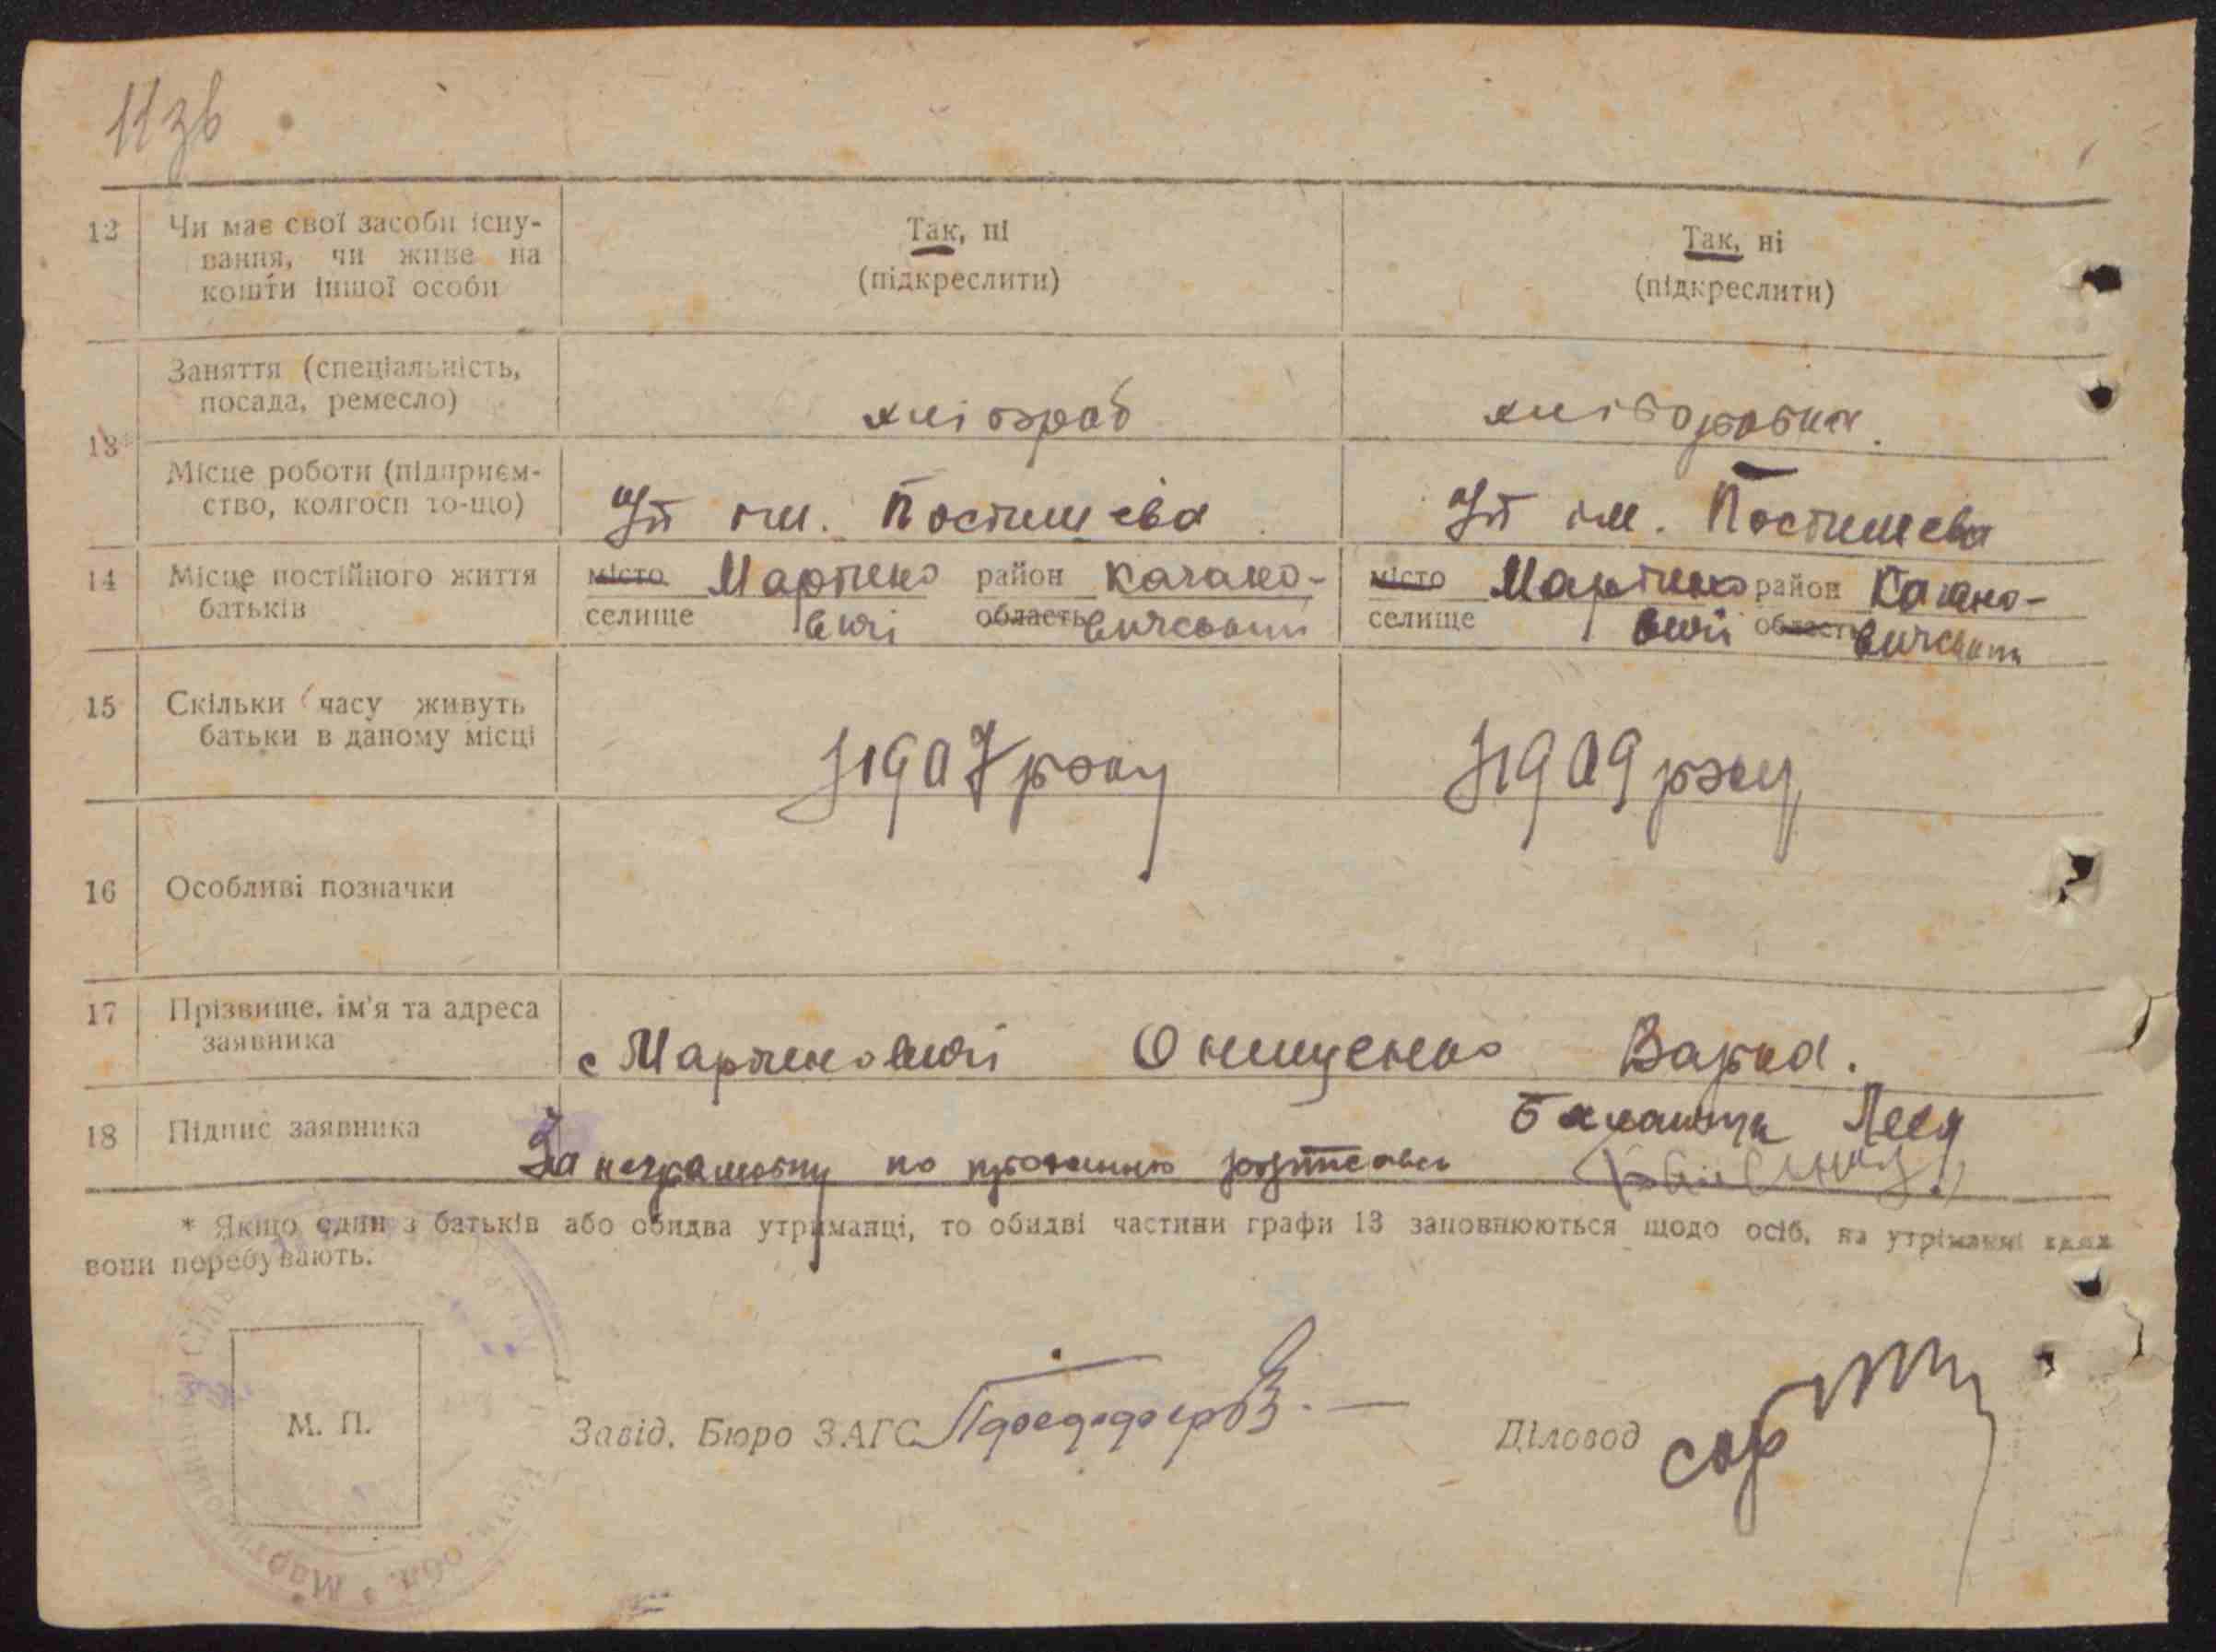 11зв
12 Чи має свої засоби існу-
вання, чи живе на
кошти іншої особи
Так, ні
(підкреслити)
Так, ні
(підкреслити)
13*
Заняття (спеціальність,
посада, ремесло)
хлібороб
хліборобка.
Місце роботи (підприєм-
ство, колгосп то-що)
ім. Постишева
ім. Постишева
14 Місце постійного життя
батьків
місто Мартино район Кагано-
селище вичі область вичський
місто Мартино район Кагано-
селище вичі область вичський
15 Скільки часу живуть
батьки в даному місці
З 1907 року
З 1909 року
16 Особливі позначки
17 Прізвище, ім'я та адреса
заявника
с Мартиновичі Онищенко Варка.
18 Підпис заявника
За неграмотну по
* Якщо один з батьків або обидва утриманці, то обидві частини графи 13 заповнюються щодо осіб, на утриманні яких
вони перебувають.
М. П.
Завід. Бюро ЗАГС
Діловод